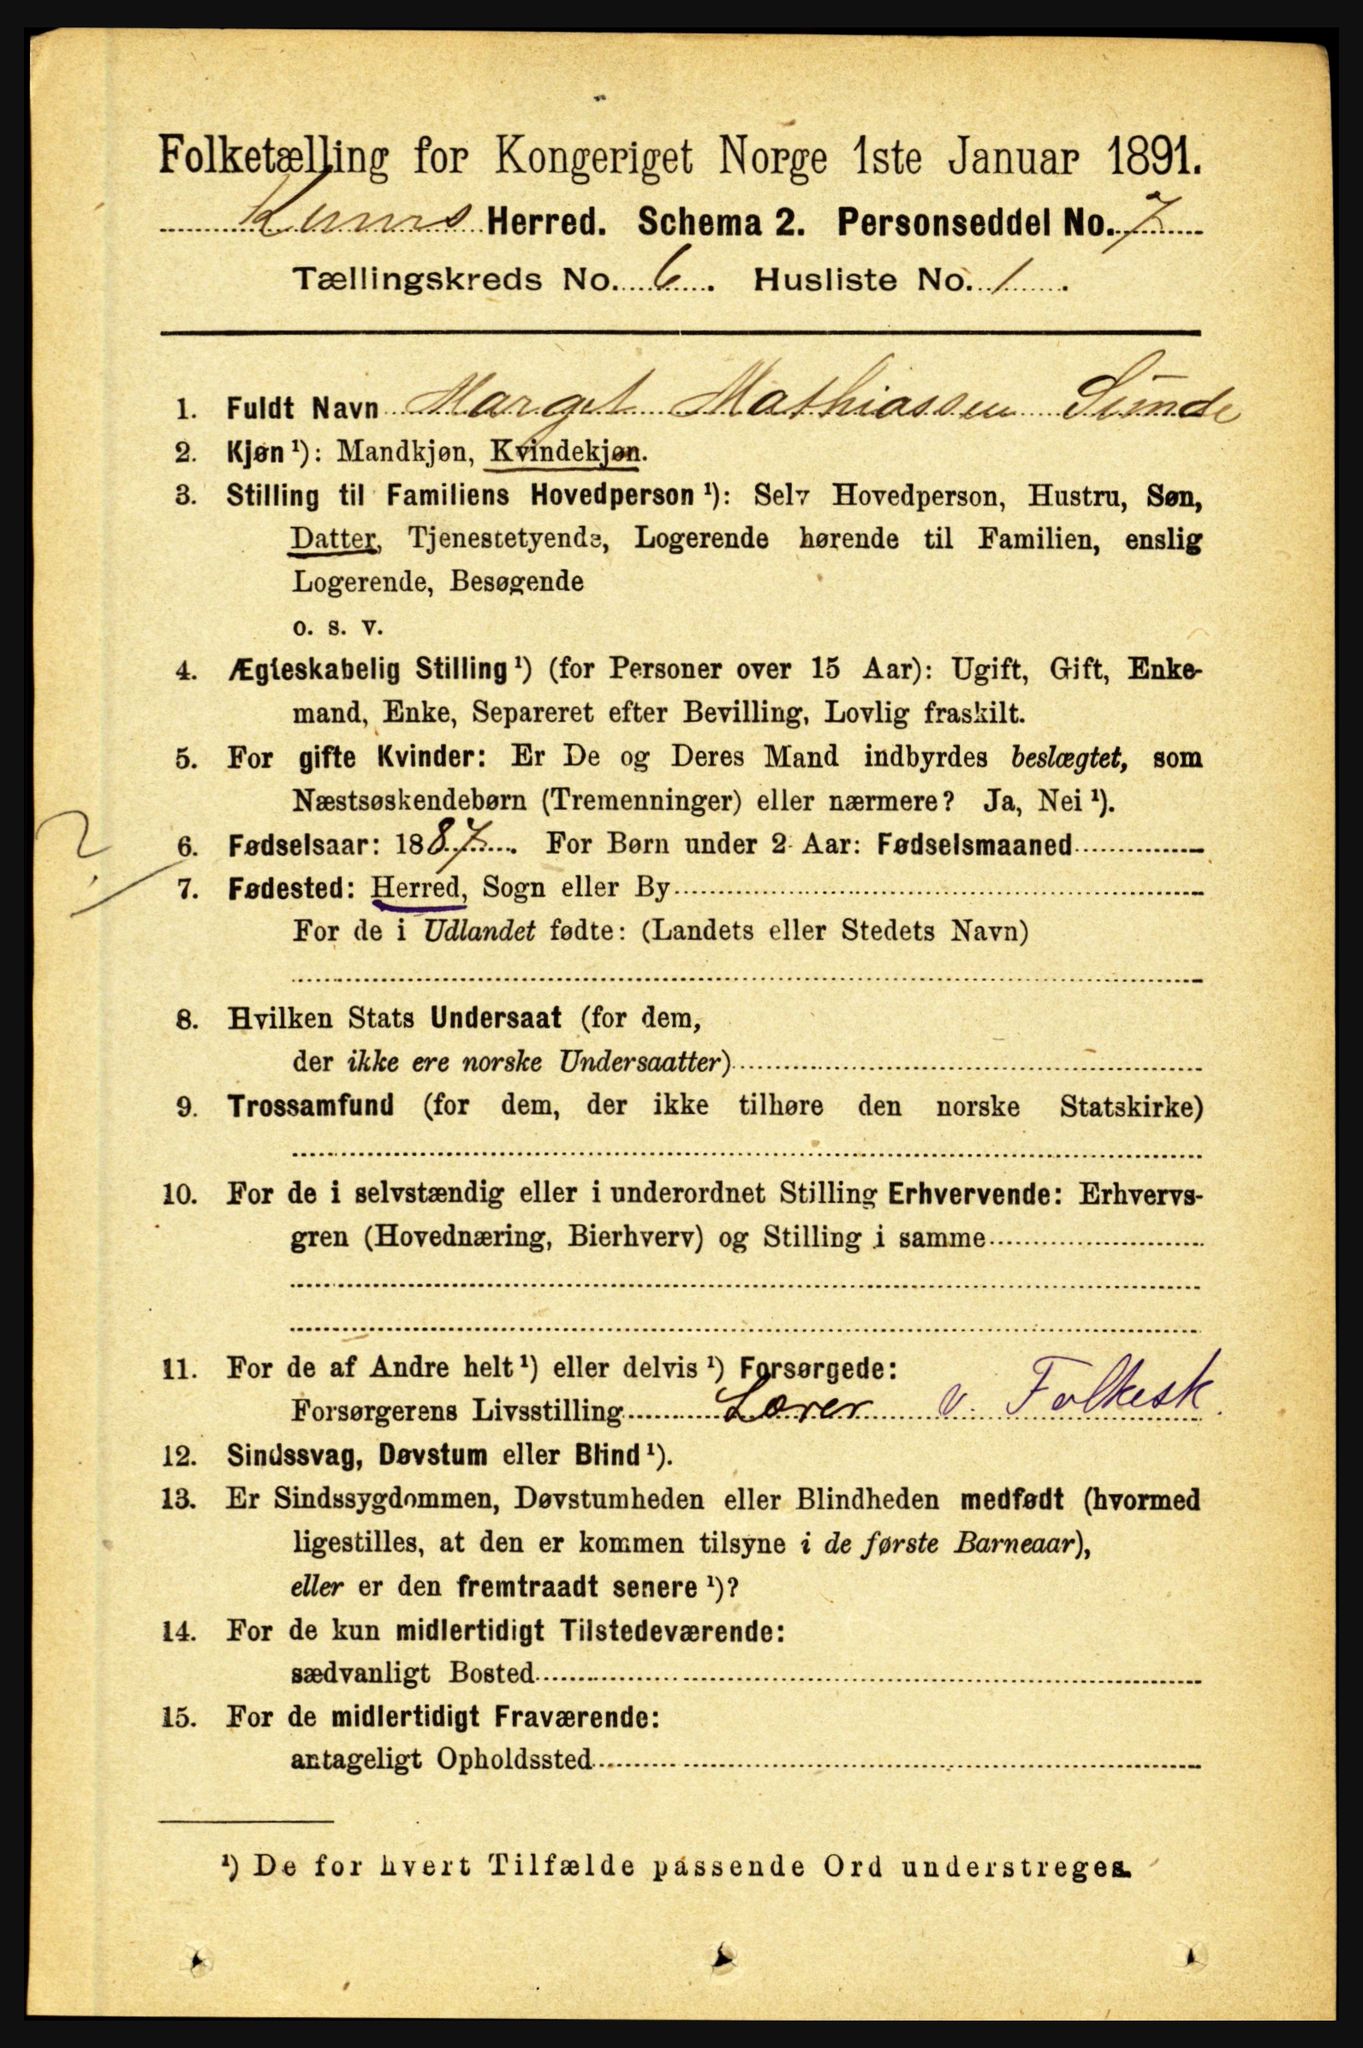 Folketælling for Kongeriget Norge 1ste Januar 1891.
Herred. Schema 2. Personseddel No. 7
Tællingskreds No. 6. Husliste No. 1.
1. Fuldt Navn Marget Mathiassen Sunde
2. Kjøn¹): Mandkjøn, Kvindekjøn.
3. Stilling til Familiens Hovedperson¹): Selv Hovedperson, Hustru, Søn,
Datter, Tjenestetyende, Logerende hørende til Familien, enslig
Logerende, Besøgende
o. s. v.
4. Ægteskabelig Stilling¹) (for Personer over 15 Aar): Ugift, Gift, Enke-
mand, Enke, Separeret efter Bevilling, Lovlig fraskilt.
5. For gifte Kvinder: Er De og Deres Mand indbyrdes beslægtet, som
Næstsøskendebørn (Tremenninger) eller nærmere? Ja, Nei¹).
?
6. Fødselsaar: 1887. For Børn under 2 Aar: Fødselsmaaned
7. Fødested: Herred, Sogn eller By
For de i Udlandet fødte: (Landets eller Stedets Navn)
8. Hvilken Stats Undersaat (for dem,
der ikke ere norske Undersaatter)
9. Trossamfund (for dem, der ikke tilhøre den norske Statskirke)
10. For de i selvstændig eller i underordnet Stilling Erhvervende: Erhvervs-
gren (Hovednæring, Bierhverv) og Stilling i samme
11. For de af Andre helt¹) eller delvis¹) Forsørgede:
Forsørgerens Livsstilling Lærer v. Folkesk.
12. Sindssvag, Døvstum eller Blind¹).
13. Er Sindssygdommen, Døvstumheden eller Blindheden medfødt (hvormed
ligestilles, at den er kommen tilsyne i de første Barneaar),
eller er den fremtraadt senere¹)?
14. For de kun midlertidigt Tilstedeværende:
sædvanligt Bosted
15. For de midlertidigt Fraværende:
antageligt Opholdssted
¹) De for hvert Tilfælde passende Ord understreges.